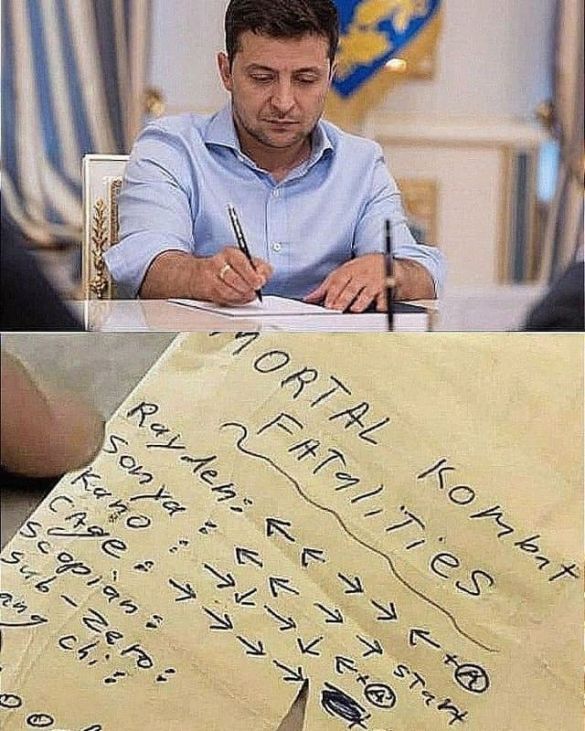 MORTAL Kombat
FATaliTies
Rayden: ← ← → → ← + Ⓐ
Sonya: ← ← → → START
Kano: → ↓ → ↓ ← + Ⓐ
CAge: → → → → →
Scopian:
sub-Zero:
ang chi: